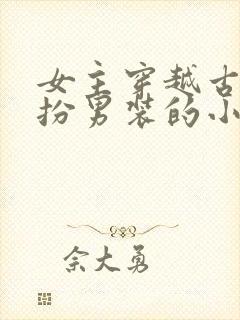 女主穿越古
扮男装的小
佘大勇